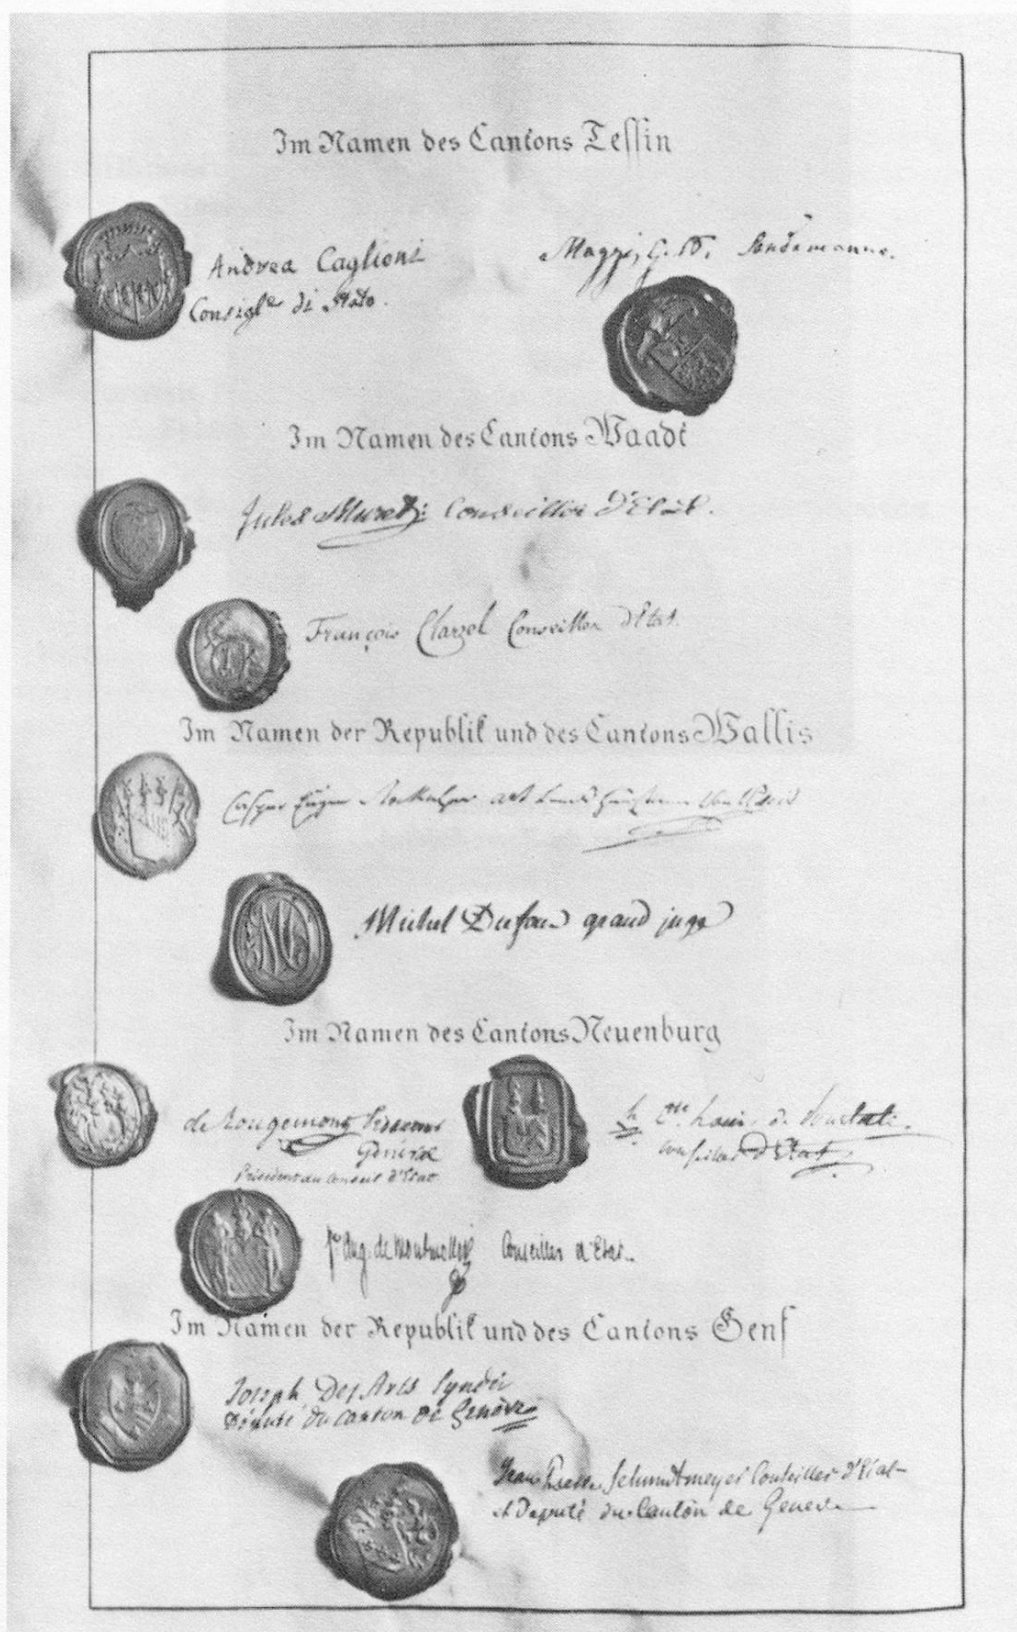 Im Namen des Cantons Tessin
Andrea Caglioni
Maggi, G. Landamanno.
Consigl.e di Stato.
Im Namen des Cantons Waadt
Jules Muret, Conseiller d'Etat.
François Clavel Conseiller d'Etat.
Im Namen der Republik und des Cantons Wallis
Caspar Eugen Stockalper
Michel Dufour grand juge
Im Namen des Cantons Neuenburg
de Rougemont
Général
Président du Conseil d'Etat
Louis de Pourtalès.
conseiller d'Etat
Aug. de Montmollin Conseiller d'Etat.
Im Namen der Republik und des Cantons Genf
Joseph Des Arts Syndic
Député du Canton de Genève
Jean Pierre Schmidtmeyer Conseiller d'Etat
et Député du Canton de Geneve